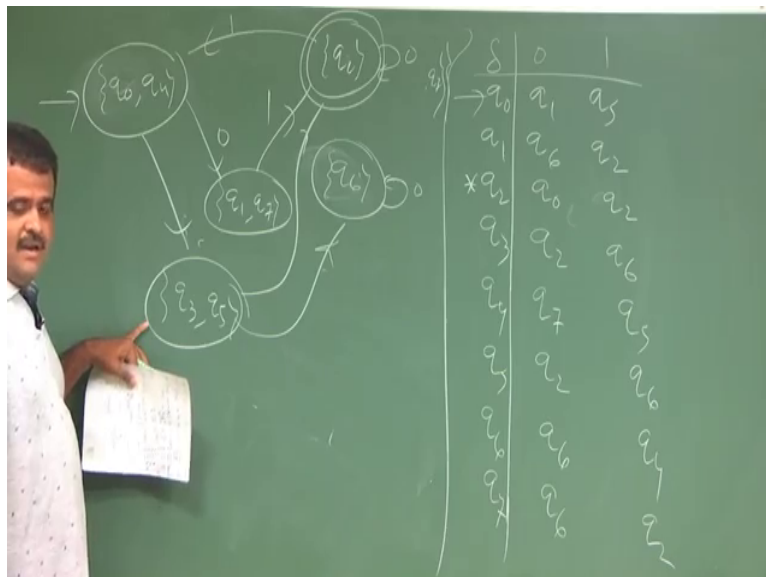 1
{q0, q4}
{q2}
0
0
1
{q6}
0
{q1, q7}
{q3, q5}
δ 0 1
→q0 q1 q5
q1 q6 q2
*q2 q0 q2
q3 q2 q6
q4 q7 q5
q5 q2 q6
q6 q6 q4
q7 q6 q2